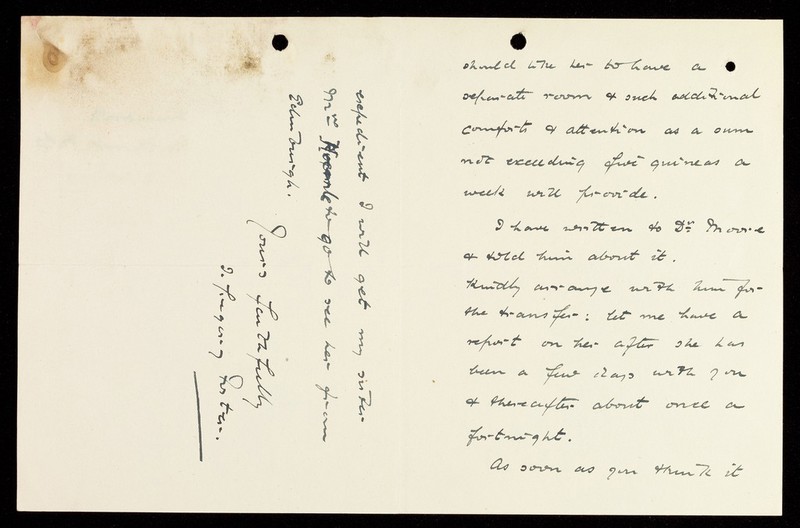 should like her to have a
separate room & such additional
comforts & attention as a sum
not exceeding five guineas a
week will provide.
I have written to Dr Moore
& told him about it.
Kindly arrange with him for
the transfer: let me have a
report on her after she has
been a few days with you
& thereafter about once a
fortnight.
As soon as you think it
expedient I will get my sister
Mrs to go to see her from
Edinburgh.
Yours faithfully